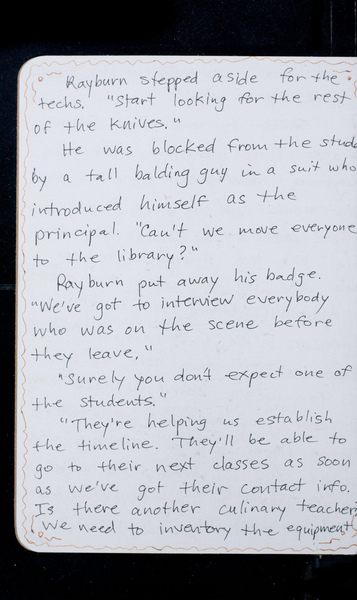 Rayburn stepped aside for the
techs. "Start looking for the rest
of the knives."
He was blocked from the stude
by a tall balding guy in a suit who
introduced himself as the
principal. "Can't we move everyone
to the library?"
Rayburn put away his badge.
"We've got to interview everybody
who was on the scene before
they leave,"
"Surely you don't expect one of
the students."
"They're helping us establish
the timeline. They'll be able to
go to their next classes as soon
as we've got their contact info.
Is there another culinary teacher?
We need to inventory the equipment